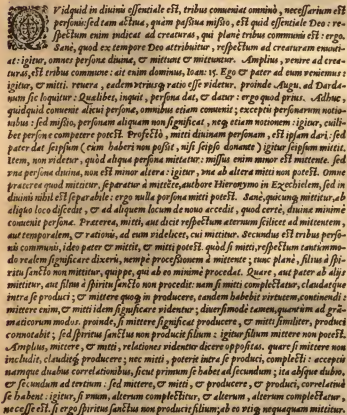 QVidquid in diuinis essentiale est, tribus conueniat omninò, necessarium est
personis: sed tam actiua, quàm passiua missio, est quid essentiale Deo: re-
spectum enim indicat ad creaturas, qui planè tribus communis est: ergo.
Sanè, quod ex tempore Deo attribuitur, respectum ad creaturam enunti-
at: igitur, omnes persona diuina, & mittunt & mittuntur. Amplius, venire ad crea-
turas, est tribus commune: ait enim dominus, Ioan: 15. Ego & pater ad eum veniemus:
igitur, & mitti. reuera, eadem vtriusq; ratio esse videtur. proinde Aug. ad Darda-
num sic loquitur: Quælibet, inquit, persona dat, & datur: ergo quod prius. Adhuc,
quidquid conuenit alicui persona, omnibus etiam conuenit; exceptis personarum notio-
nibus: sed missio, personam aliquam non significat, neq; etiam notionem: igitur, cuili-
bet persone competere potest. Profectò, mitti diuinam personam, est ipsam dari: sed
pater dat seipsum (cum haberi non possit, nisi seipso donante) igitur seipsum mittit.
Item, non videtur, quòd aliqua persona mittatur: missus enim minor est mittente. sed
vna persona diuina, non est minor altera: igitur, vna ab altera mitti non potest. Omne
præterea quod mittitur, separatur à mittēte, authore Hieronymo in Ezechielem, sed in
diuinis nihil est separabile: ergo nulla persona mitti potest. Sanè, quicunq; mittitur, ab
aliquo loco discedit, & ad aliquem locum de nouo accedit, quod certè, diuina minimè
conuenit persona. Præterea, mitti, aut dicit respectum æternum scilicet ad mittentem,
aut temporalem, & rationis, ad eum videlicet, cui mittitur. Secundus est tribus perso-
nis communis, ideo pater & mittit, & mitti potest. quòd si mitti, respectum tantummo-
do realem significare dixeris, nempè processionem à mittente; tunc planè, filius à spi-
ritu sancto non mittitur, quippe, qui ab eo minimè procedat. Quare, aut pater ab alijs
mittitur, aut filius à spiritu sancto non procedit: nam si mitti complectatur, claudatque
intra se produci; & mittere quoq; in producere, eandem habebit virtutem, continendi:
mittere enim, & mitti idem significare videntur; diuersimodè tamen, quantùm ad grã-
maticorum modos. proinde, si mittere significat producere, & mitti similiter, produci
connotabit; sed spiritus sanctus non producit filium: igitur filium mittere non potest.
Amplius, mittere, & mitti, relationes videntur dicere oppositas. quare si mittere non
includit, clauditq; producere; nec mitti, poterit intra se produci, complecti: accepta
namque duabus correlationibus, sicut primum se habet ad secundum; ita absque dubio,
& secundum ad tertium: sed mittere, & mitti, & producere, & produci, correlatiuè
se habent: igitur, si vnum, alterum complectitur, & alterum, alterum complectatur,
necesse est, si ergo spiritus sanctus non producit filium; ab eo vtiq; nequaquam mittitur.